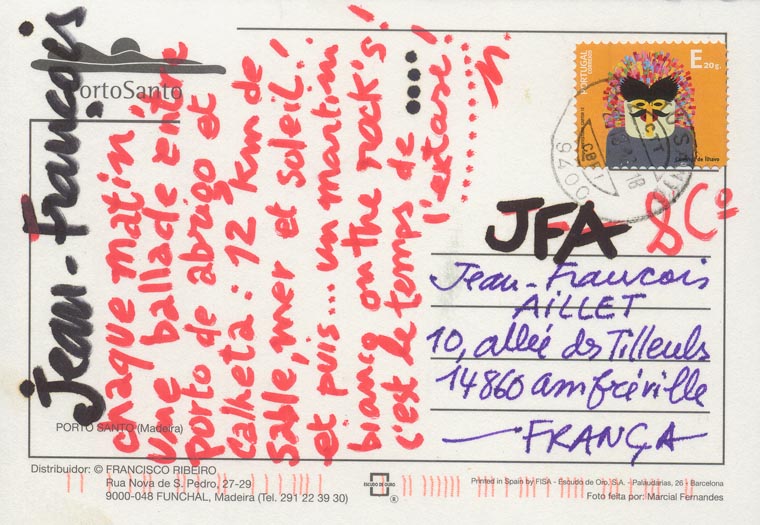 PortoSanto
Jean-François
Chaque matin'
Une ballade entre
porto de abrigo et
Calheta : 12 km de
Sable, mer et soleil!
et puis... un martini
bianco on the rock's!
c'est le temps de ....
l'extase!
PORTUGAL
CORREIOS
E 20g.
JFA & Cº
Jean-Francois
AILLET
10, allée des Tilleuls
14860 amfréville
FRANÇA
PORTO SANTO (Madeira)
Distribuidor: © FRANCISCO RIBEIRO
Rua Nova de S. Pedro, 27-29
9000-048 FUNCHAL, Madeira (Tel. 291 22 39 30)
ESCUDO DE ORO
®
Printed in Spain by FISA - Escudo de Oro, S.A. - Palaudarias, 26 - Barcelona
Foto feita por: Marcial Fernandes